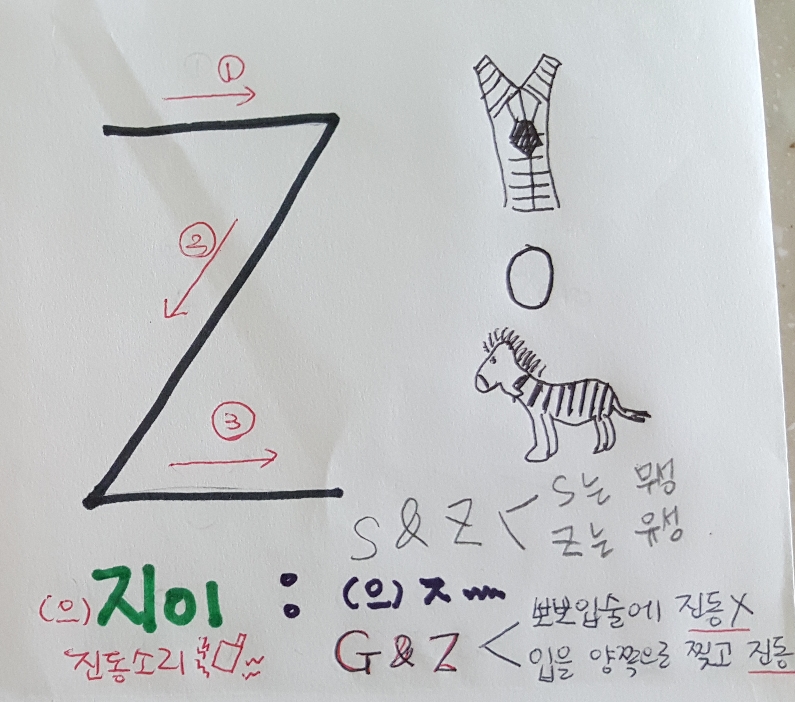 ①
Z
②
③
0
S & Z < S는 무성
Z는 유성
(으)지이 : (으)ㅈ
진동소리
G & Z < 뽀뽀입술에 진동X
입을 양쪽으로 찢고 진동